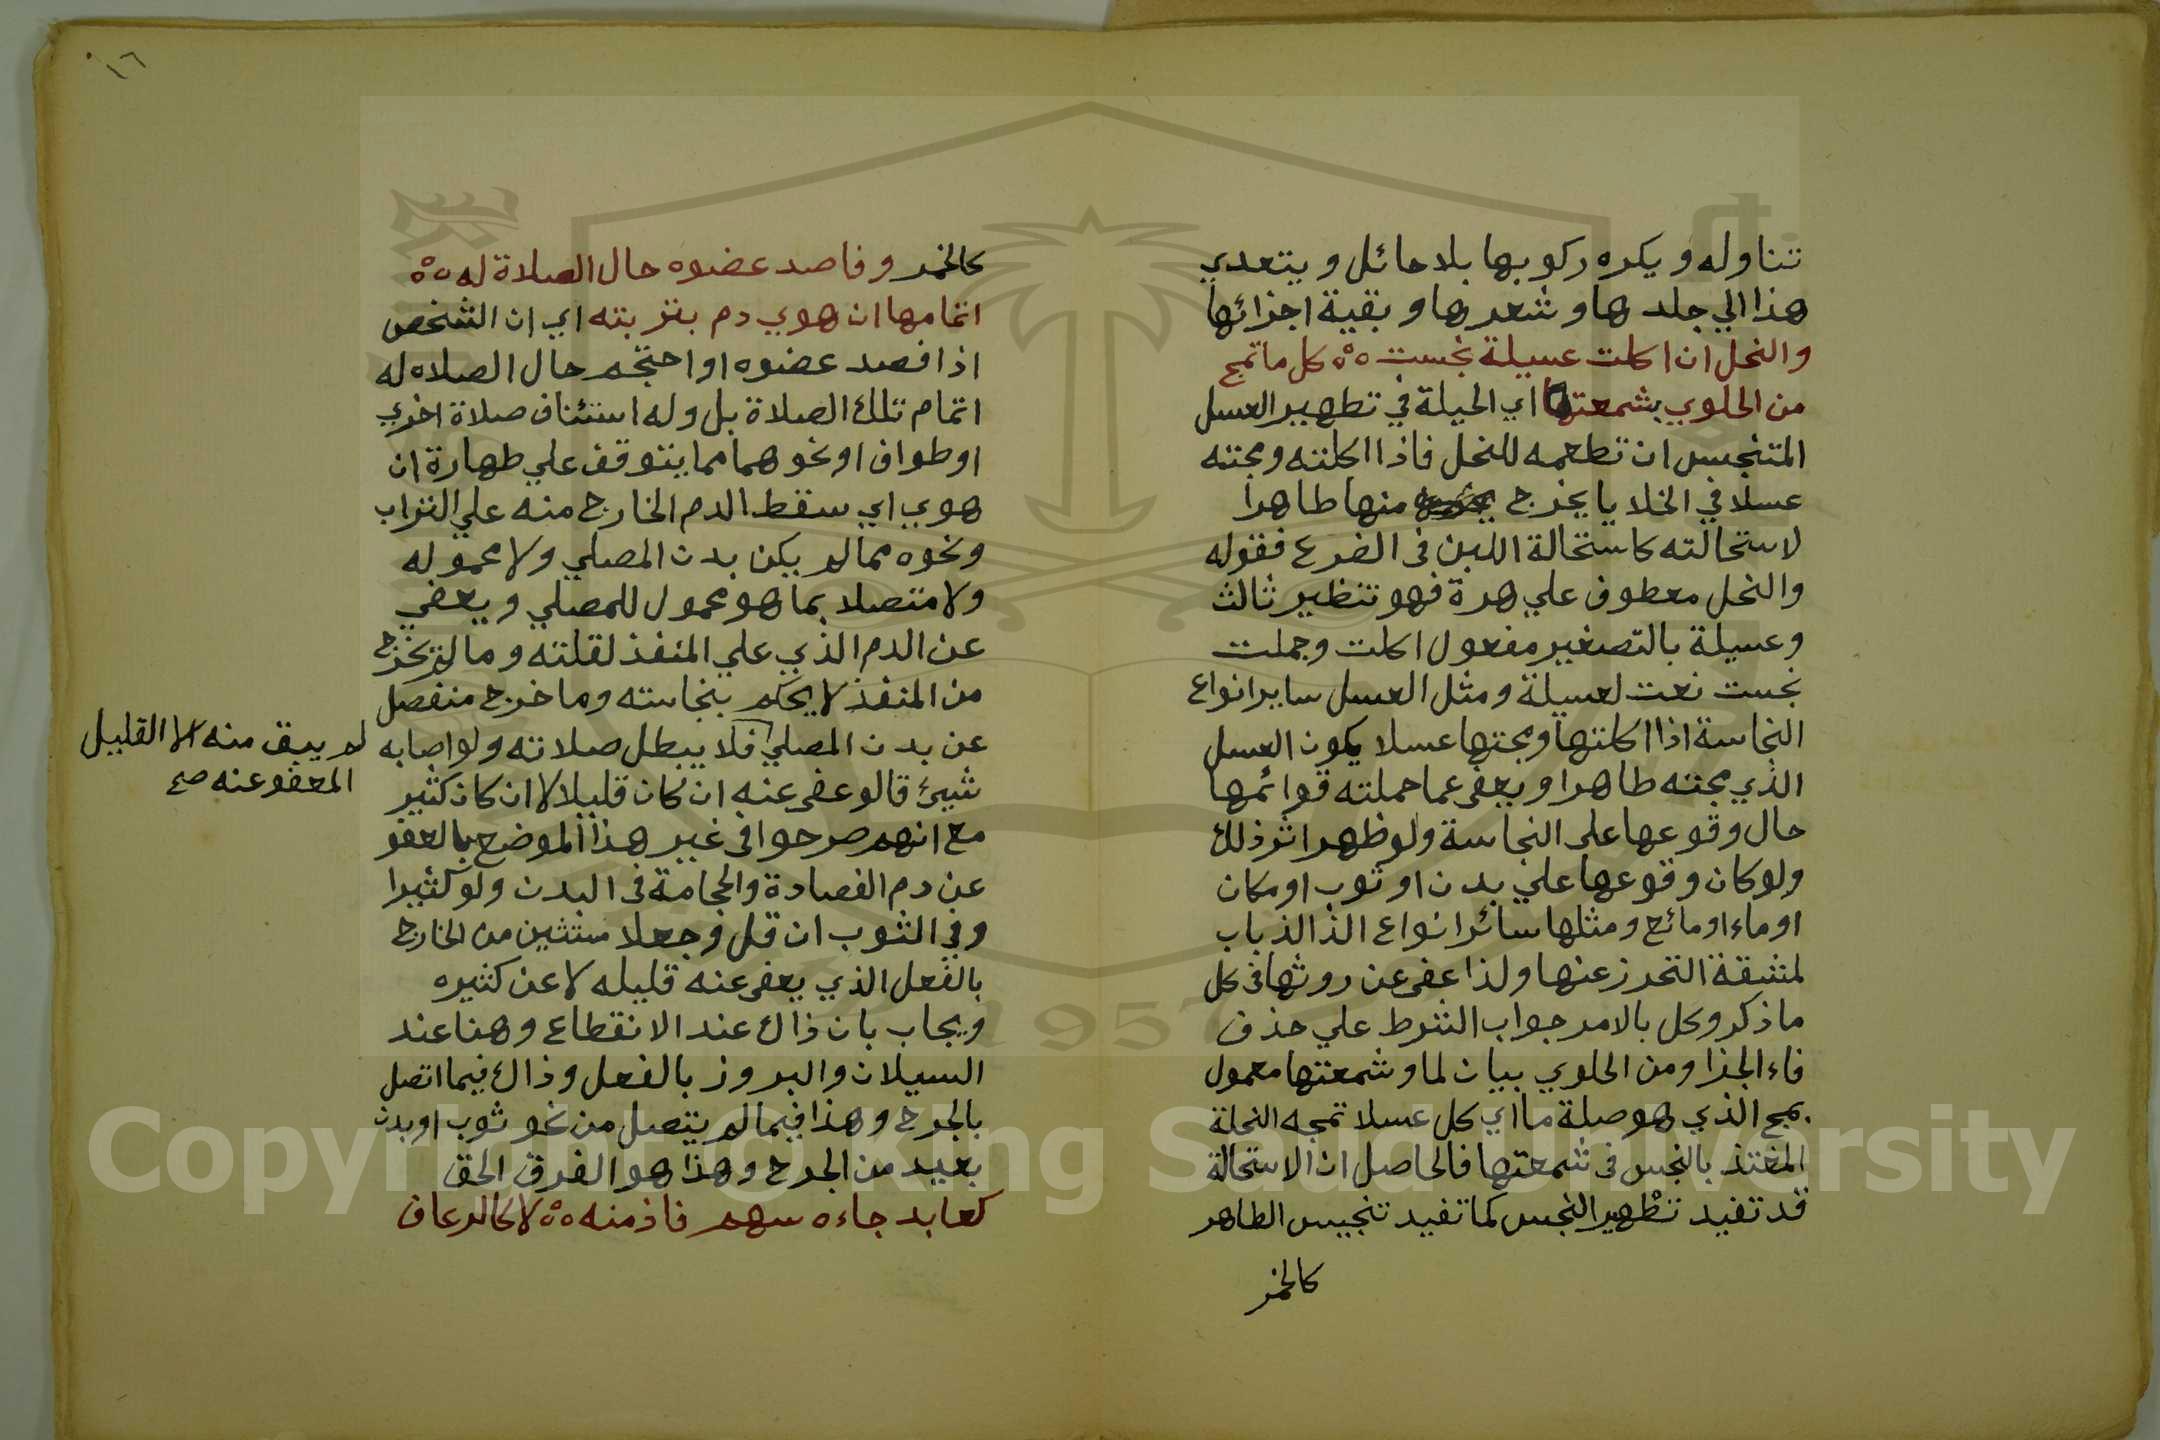 تناوله و يكره ركوبها بلا حائل و يتعدي
هذا الي جلدها و شعرها و بقية اجزائها
والنحل ان اكلت عسيلة نجست ٥°٥ كل ما تمج
من الحلوي بشمعتها اي الحيلة في تطهير العسل
المتنجس ان تطعمه للنحل فاذا اكلته ومجته
عسلا في الخلايا يخرج منها طاهرا
لاستحالته كاستحالة اللبن في الضرع فقوله
والنحل معطوف علي هرة فهو تنظير ثالث
وعسيلة بالتصغير مفعول اكلت وجملت
نجست نعت لعسيلة ومثل العسل ساير انواع
النجاسة اذا اكلتها ومجتها عسلا يكون العسل
الذي مجته طاهرا و يعفي عما حملته قوائمها
حال وقوعها علي النجاسة ولو ظهر اثر ذلك
ولو كان وقوعها علي بدن او ثوب او مكان
او ماء او مائع ومثلها سائر انواع الذ الذباب
لمشقة التحرز عنها ولذا عفي عن روثها في كل
ما ذكر وكل بالامر جواب الشرط علي حذف
فاء الجزا ومن الحلوي بيان لما وشمعتها معمول
بمج الذي هو صلة ما اي كل عسلا تمجه النحلة
المغتذ بالنجس في شمعتها فالحاصل ان الاستحالة
قد تفيد تطهير النجس كما تفيد تنجيس الطاهر
كالخمر
١٦
كالخمر و فاصد عضوه حال الصلاة له ٥°٥
اتمامها ان هوي دم بتربته اي ان الشخص
اذا فصد عضوه او احتجم حال الصلاه له
اتمام تلك الصلاة بل وله استئناف صلاة اخري
او طواف او نحوهما مما يتوقف علي طهارة ان
هوي اي سقط الدم الخارج منه علي التراب
ونحوه مما لم يكن بدن المصلي ولا محموله
ولا متصلا بما هو محمول للمصلي و يعفي
عن الدم الذي علي المنفذ لقلته و ما لم يخرج
من المنفذ لا يحكم بنجاسته وما خرج منفصل
عن بدن المصلي فلا يبطل صلاته ولو اصابه
لم يبق منه الا القليل
المعفو عنه صح
شيئ قالو عفي عنه ان كان قليلا لا ان كان كثير
مع انهم صرحوا في غير هذا الموضع بالعفو
عن دم الفصادة والحجامة في البدن ولو كثيرا
وفي الثوب ان قل وجعلا مستثين من الخارج
بالفعل الذي يعفي عنه قليله لا عن كثيره
ويجاب بان ذاك عند الانقطاع وهنا عند
السيلان والبروز بالفعل وذاك فيما اتصل
بالجرح وهذا فيما لم يتصل من نحو ثوب او بدن
بعيد من الجرح وهذا هو الفرق الحق
كعابد جاءه سهم فاذ منه ٥°٥ لا كالرعاف
1957
Copyright © King Saud University